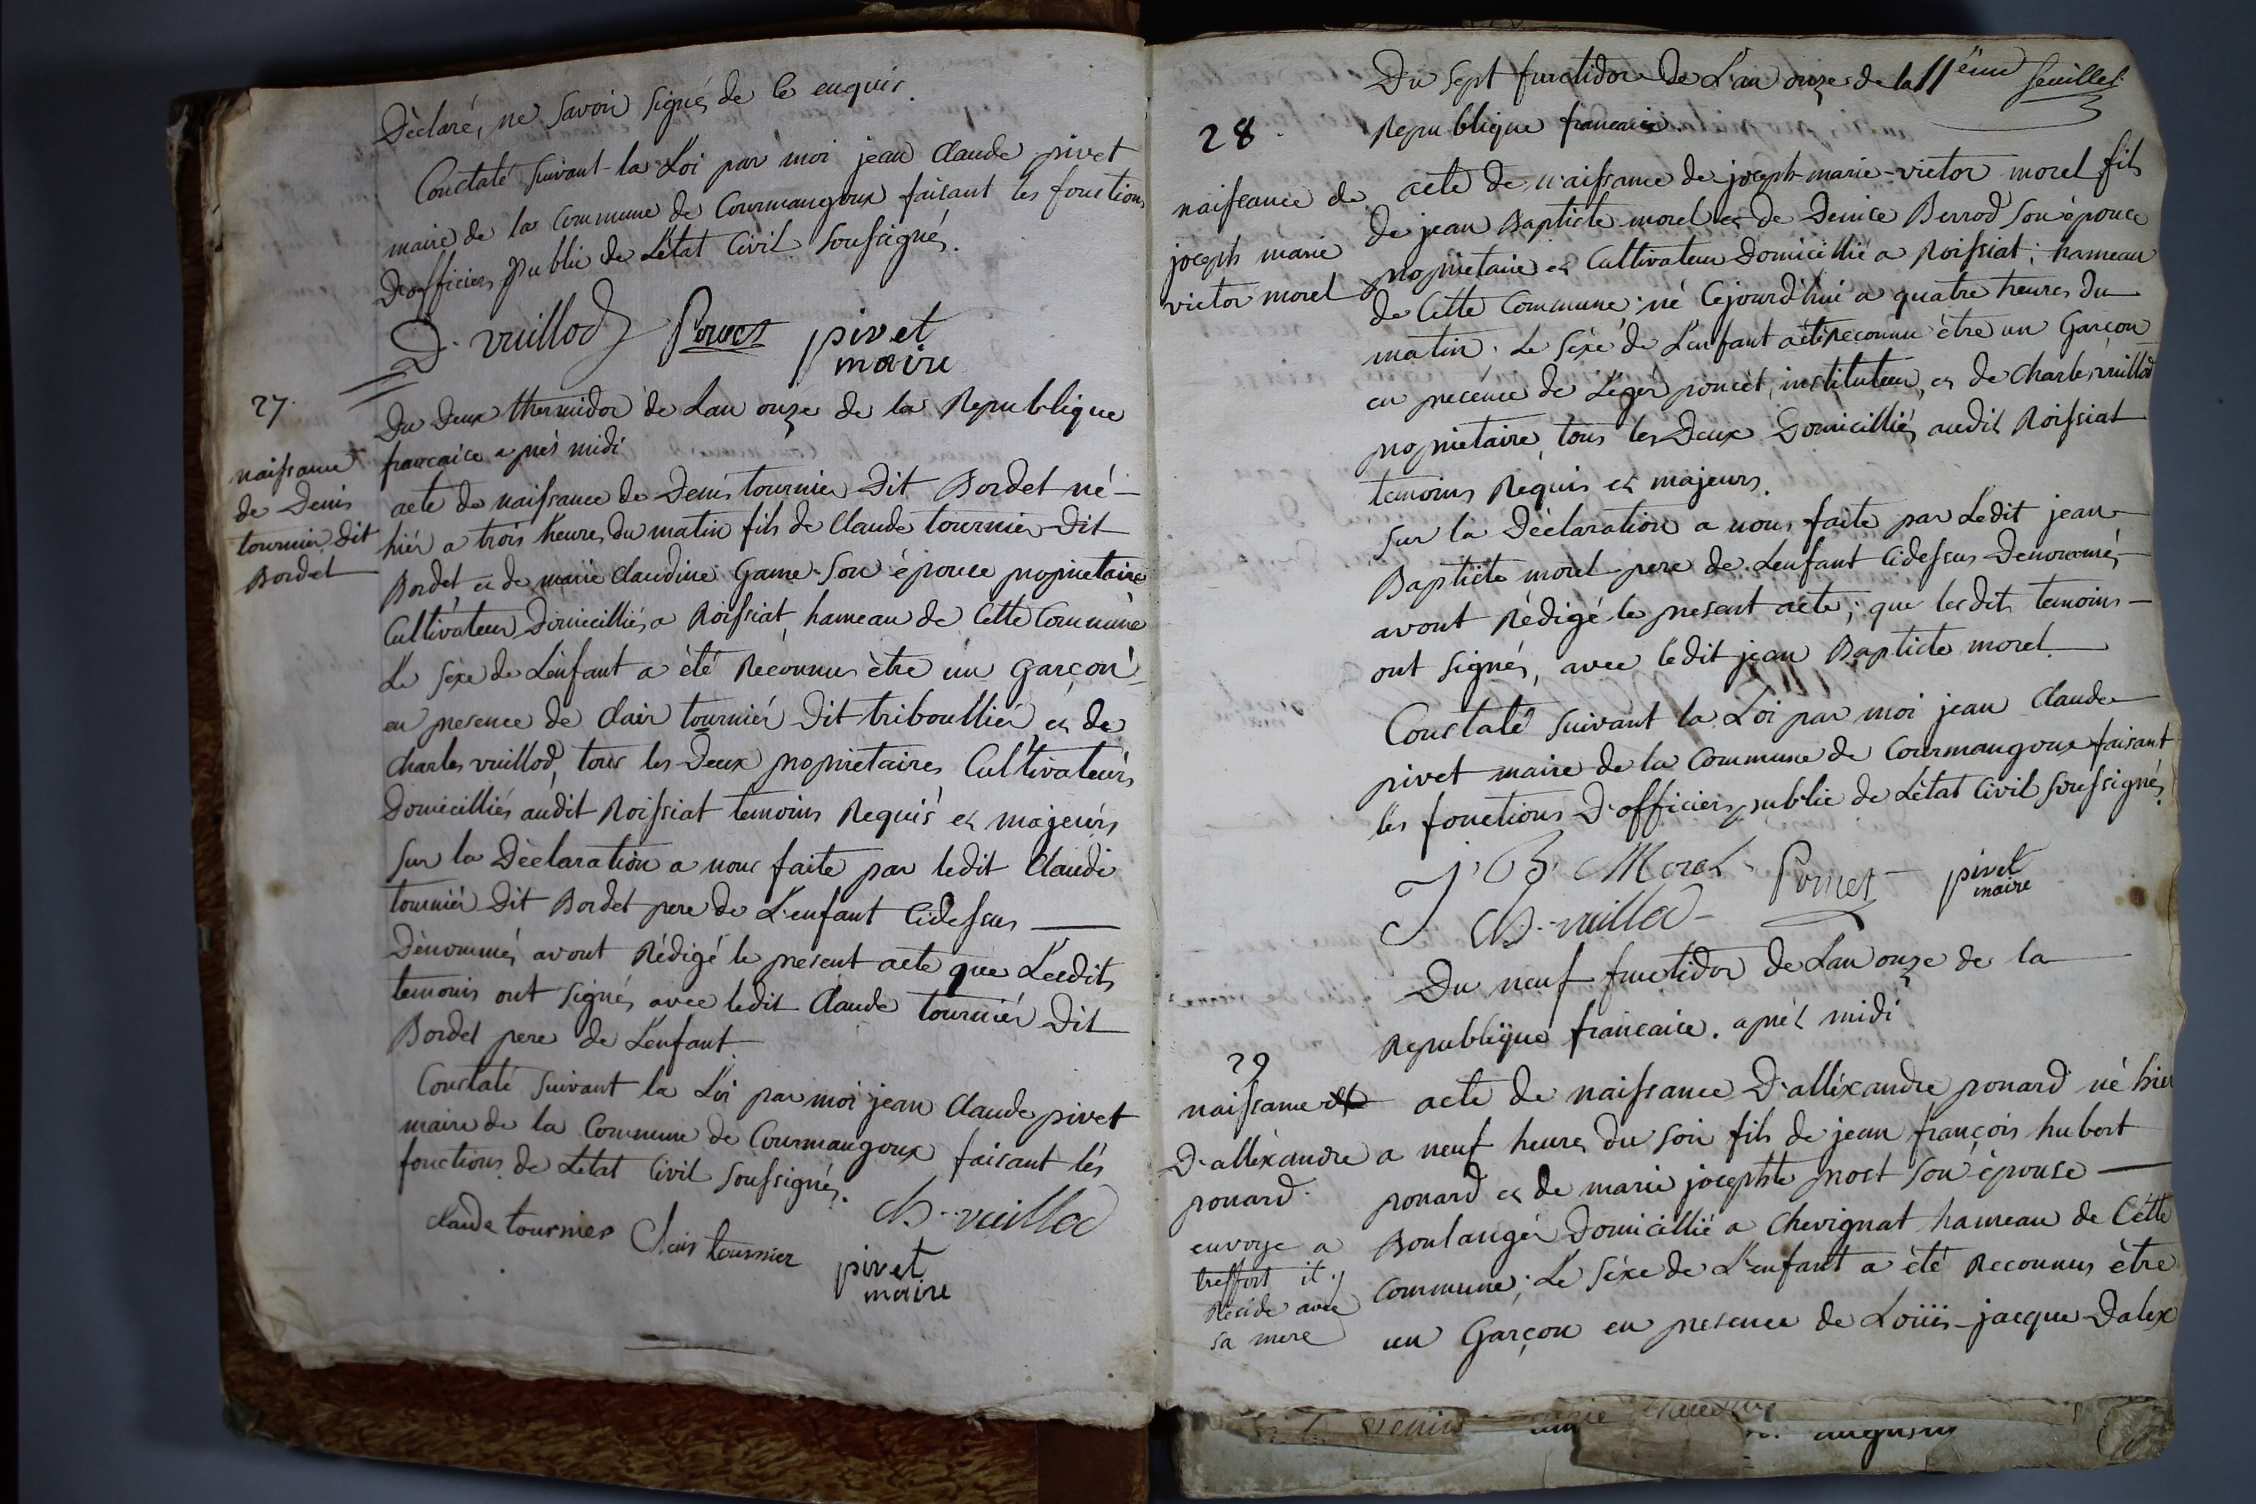 Déclaré, ne savoir signé, de ce enquis.
Constaté suivant la Loi par moi jean claude pivet
maire de la commune de Courmangoux faisant les fonctions
D'officier Public de L'état Civil soussigné.
D. vuillod Poncet pivet
maire
27.
Du Deux thermidor de Lan onze de la Republique
francaice après midi
naissance
de Denis
tournier Dit
Bordet
acte de naissance de Denis tournier Dit Bordet né
hiér a trois heures du matin fils de Claude tournier Dit
Bordet et de marie claudine Game son épouce proprietaire
Cultivateur Domicilliés a Roissiat hameau de Cette Commune
Le séxe de L'enfant a été Reconnus être un garçon
en presence de clair tourniér Dit triboulliér et de
charles vuillod, tous les Deux proprietaires Cultivateurs
Domicilliés audit Roissiat temoins Requis et majeurs
sur la Déclaration a nous faite par ledit Claude
tourniér Dit Bordet pere de L'enfant Cidessus
Dénommé, avont Rédigé le present acte que Lesdits
temoins ont signés avec ledit Claude tourniér Dit
Bordet pere de L'enfant
Constaté suivant la Loi par moi jean Claude pivet
maire de la Commune de Courmangoux faisant lés
fonctions de Létat Civil soussigné.
claude tournier Clair tournier ch. vuillod
pivet
maire
11ème feuillet
Du sept fructidor de L'an onze de la
Republique francaice
28.
naissance de
joseph marie
victor morel
acte de naissance de joseph-marie-victor morel fils
de jean Baptiste morel et de Denice Berrod son épouce
proprietaire et Cultivateur Domicillié a Roissiat; hameau
de Cette Commune; né cejourd'hui a quatre heures du
matin. Le séxe de L'enfant a été Reconnu être un Garçon
en presence de Léger poncet, instituteur, et de charles vuillod
proprietaire, tous les Deux Domicilliés audit Roissiat
temoins Requis et majeurs.
sur la Déclaration a nous faite par Ledit jean
Baptiste morel pere de L'enfant Cidessus Denommé,
avont Rédigé le present acte; que lesdits temoins
ont signés, avec ledit jean Baptiste morel
Constaté suivant la Loi par moi jean Claude
pivet maire de la Commune de Courmangoux faisant
les fonctions D'officier public de Létat Civil soussigné.
J. B. Morel Poncet pivet
maire
Ch. vuillod
Du neuf fructidor de Lan onze de la
Republique francaice. aprés midi
29
naissance
D'alléxandre
ponard.
envoye a
treffort it. y
Récide avec
sa mere
acte de naissance D'alléxandre ponard né hier
a neuf heures du soir fils de jean françois hubert
ponard et de marie josephte prost son épouse
Boulangér Domicillié a chevignat hameau de Cétte
Commune; Le séxe de L'enfant a été Reconnus être
un Garçon en presence de Loüis-jacque Dalex